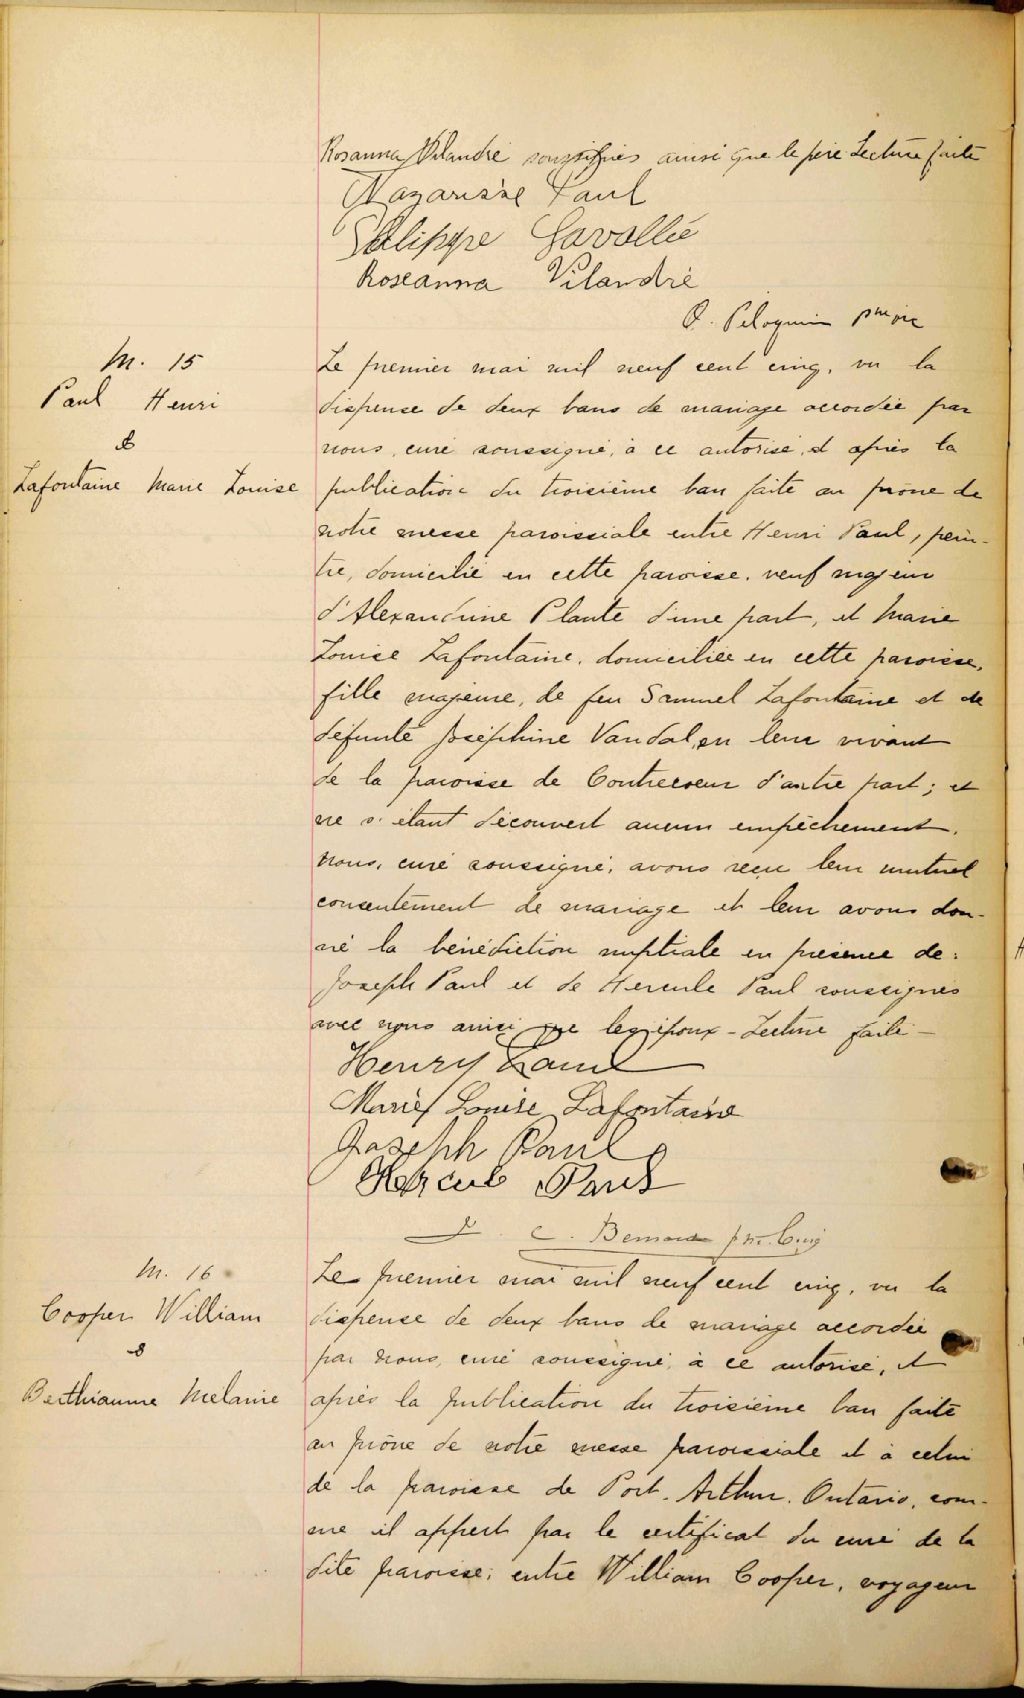 Rosanna Vilandré soussignés ainsi que le père Lecture faite
Nazarisse Paul
Philippe Lavallée
Roseanna Vilandré
O. Peloquin ptre vic
M. 15
Paul Henri
&
Lafontaine Marie Louise
Le premier mai mil neuf cent cinq, vu la
dispense de deux bans de mariage accordée par
nous, curé soussigné, à ce autorisé, et après la
publication du troisième ban faite au prône de
notre messe paroissiale entre Henri Paul, pein-
tre, domicilié en cette paroisse, veuf majeur
d'Alexandrine Plante d'une part, et Marie
Louise Lafontaine, domiciliée en cette paroisse,
fille majeure, de feu Samuel Lafontaine et de
défunte Joséphine Vandal, en leur vivant
de la paroisse de Contrecoeur d'autre part; et
ne s'étant découvert aucun empêchement,
nous, curé soussigné, avons reçu leur mutuel
consentement de mariage et leur avons don-
né la bénédiction nuptiale en présence de:
Joseph Paul et de Hercule Paul soussignés
avec nous ainsi que les époux - Lecture faite -
Henry Paul
Marie Louise Lafontaine
Joseph Paul
Hercule Paul
C. Bernard ptre. Curé
M. 16
Cooper William
&
Berthiaume Melanie
Le premier mai mil neuf cent cinq, vu la
dispense de deux bans de mariage accordée
par nous, curé soussigné, à ce autorisé, et
après la publication du troisième ban faite
au prône de notre messe paroissiale et à celui
de la paroisse de Port. Arthur. Ontario, com-
me il appert par le certificat du curé de la
dite paroisse; entre William Cooper, voyageur